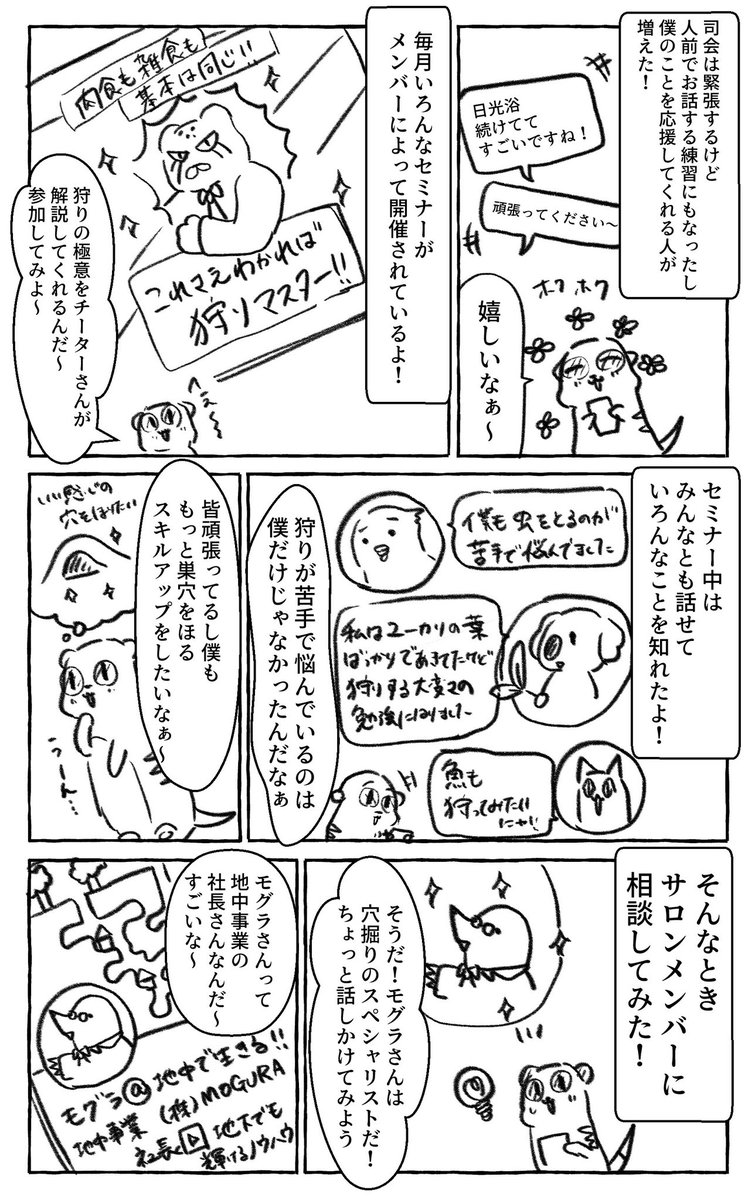 司会は緊張するけど
人前でお話する練習にもなったし
僕のことを応援してくれる人が
増えた！
日光浴
続けてて
すごいですね！
頑張ってください〜
ホクホク
嬉しいなぁ〜
毎月いろんなセミナーが
メンバーによって開催されているよ！
肉食も雑食も
基本は同じ!!
これさえわかれば
狩りマスター!!
狩りの極意をチーターさんが
解説してくれるんだ〜
参加してみよ〜
へぇ〜
セミナー中は
みんなとも話せて
いろんなことを知れたよ！
僕も虫をとるのが
苦手で悩んでました
私はユーカリの葉
ばかりであきてたけど
狩りする大変さの
勉強になりました
魚も
狩ってみたい
にゃ
狩りが苦手で悩んでいるのは
僕だけじゃなかったんだなぁ
皆頑張ってるし僕も
もっと巣穴をほる
スキルアップをしたいなぁ〜
いい感じの
穴をほりたい
うーん…
そんなとき
サロンメンバーに
相談してみた！
そうだ！モグラさんは
穴掘りのスペシャリストだ！
ちょっと話しかけてみよう
モグラさんって
地中事業の
社長さんなんだ〜
すごいな〜
モグラ@地中で生きる!!
地中事業 (株)MOGURA
社長 地下でも
輝けるノウハウ